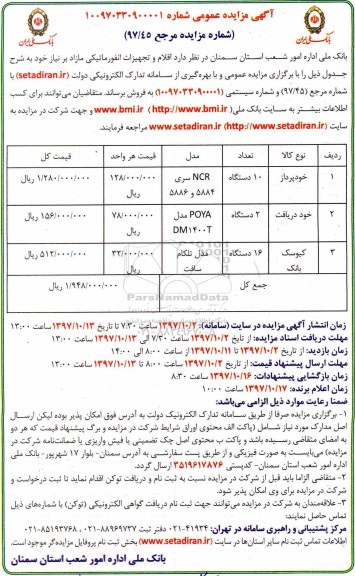 آگهی مزایده عمومی شماره ۱۰۰۹۷۰۳۳۰۹۰۰۰۰۱
(شماره مزایده مرجع ۹۷/۴۵)
بانک ملی ایران
بانک ملی ایران
بانک ملی اداره امور شعب استان سمنان در نظر دارد اقلام و تجهیزات انفورماتیکی مازاد بر نیاز خود به شرح
جدول ذیل را با برگزاری مزایده عمومی و با بهره‌گیری از سامانه تدارک الکترونیکی دولت (setadiran.ir) با
شماره مرجع (۹۷/۴۵) و شماره سیستمی (۱۰۰۹۷۰۳۳۰۹۰۰۰۰۱) به فروش برساند. متقاضیان می‌توانند برای کسب
اطلاعات بیشتر به سایت بانک ملی (http://www.bmi.ir) www.bmi.ir و جهت شرکت در مزایده به
سایت (http://www.setadiran.ir) www.setadiran.ir مراجعه فرمایند.
ردیف نوع کالا تعداد مدل قیمت هر واحد قیمت کل
۱ خودپرداز ۱۰ دستگاه NCR سری ۵۸۸۴ و ۵۸۸۶ ۱۲۸/۰۰۰/۰۰۰ ریال ۱/۲۸۰/۰۰۰/۰۰۰ ریال
۲ خود دریافت ۲ دستگاه POYA مدل DM۱۴۰۰T ۷۸/۰۰۰/۰۰۰ ریال ۱۵۶/۰۰۰/۰۰۰ ریال
۳ کیوسک بانک ۱۶ دستگاه مدل تلکام سافت ۳۲/۰۰۰/۰۰۰ ریال ۵۱۲/۰۰۰/۰۰۰ ریال
جمع کل ۱/۹۴۸/۰۰۰/۰۰۰ ریال
ParsNamadData
زمان انتشار آگهی مزایده در سایت (سامانه): ۱۳۹۷/۱۰/۲ ساعت ۷:۳۰ تا تاریخ ۱۳۹۷/۱۰/۱۳ ساعت ۱۳:۰۰
مهلت دریافت اسناد مزایده: از تاریخ ۱۳۹۷/۱۰/۲ ساعت ۷:۳۰ الی ۱۳۹۷/۱۰/۱۳ ساعت ۱۳:۰۰
زمان بازدید: از تاریخ ۱۳۹۷/۱۰/۲ تا ۱۳۹۷/۱۰/۱۱ از ساعت ۸:۰۰ الی ۱۴:۰۰
مهلت ارسال پیشنهاد قیمت: از تاریخ ۱۳۹۷/۱۰/۲ ساعت ۸:۰۰ تا ۱۳۹۷/۱۰/۱۳ ساعت ۱۳:۰۰
زمان بازگشایی پیشنهادات: ۱۳۹۷/۱۰/۱۶ ساعت ۸:۳۰
زمان اعلام برنده: ۱۳۹۷/۱۰/۱۷ ساعت ۱۰:۰۰
ضمنا رعایت موارد ذیل الزامی می‌باشد:
۱- برگزاری مزایده صرفا از طریق سامانه تدارک الکترونیک دولت به آدرس فوق امکان پذیر بوده لیکن ارسال
اصل مدارک مورد نیاز شامل (پاکت الف محتوی اوراق شرایط شرکت در مزایده و برگ پیشنهاد قیمت که هر دو
به امضای متقاضی رسیده باشد و پاکت ب محتوی اصل چک تضمینی یا فیش واریزی یا ضمانت‌نامه شرکت در
مزایده) می‌بایست به صورت فیزیکی و از طریق پست سفارشی به آدرس سمنان- بلوار ۱۷ شهریور- بانک ملی
اداره امور شعب استان سمنان- کدپستی ۳۵۱۹۶۱۷۸۷۶ ارسال گردد.
۲- متقاضی الزاما باید قبل از شرکت در مزایده نسبت به ثبت نام و دریافت توکن اقدام نماید تا ثبت درخواست و
شرکت در مزایده برای وی امکان پذیر شود.
۳- علاقه‌مندان به شرکت در مزایده می‌توانند جهت ثبت نام دریافت گواهی الکترونیکی (توکن) با شماره‌های ذیل
تماس حاصل نمایند:
مرکز پشتیبانی و راهبری سامانه در تهران: ۴۱۹۳۴-۰۲۱ دفتر ثبت ۸۸۹۶۹۷۳۷-۰۲۱، ۸۵۱۹۳۷۶۸-۰۲۱
اطلاعات تماس ثبت نام سایر استان‌ها در سایت (www.setadiran.ir) بخش ثبت نام پروفایل مزایده‌گر موجود است.
بانک ملی اداره امور شعب استان سمنان